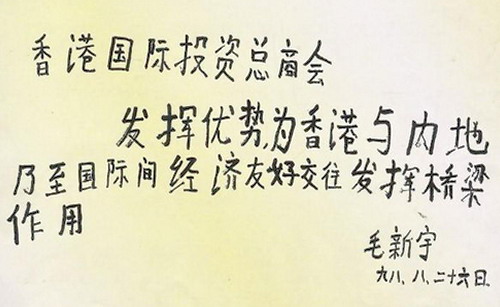 香港国际投资总商会
发挥优势,为香港与内地
乃至国际间经济友好交往发挥桥梁
作用
毛新宇
九八.八.二十六日.